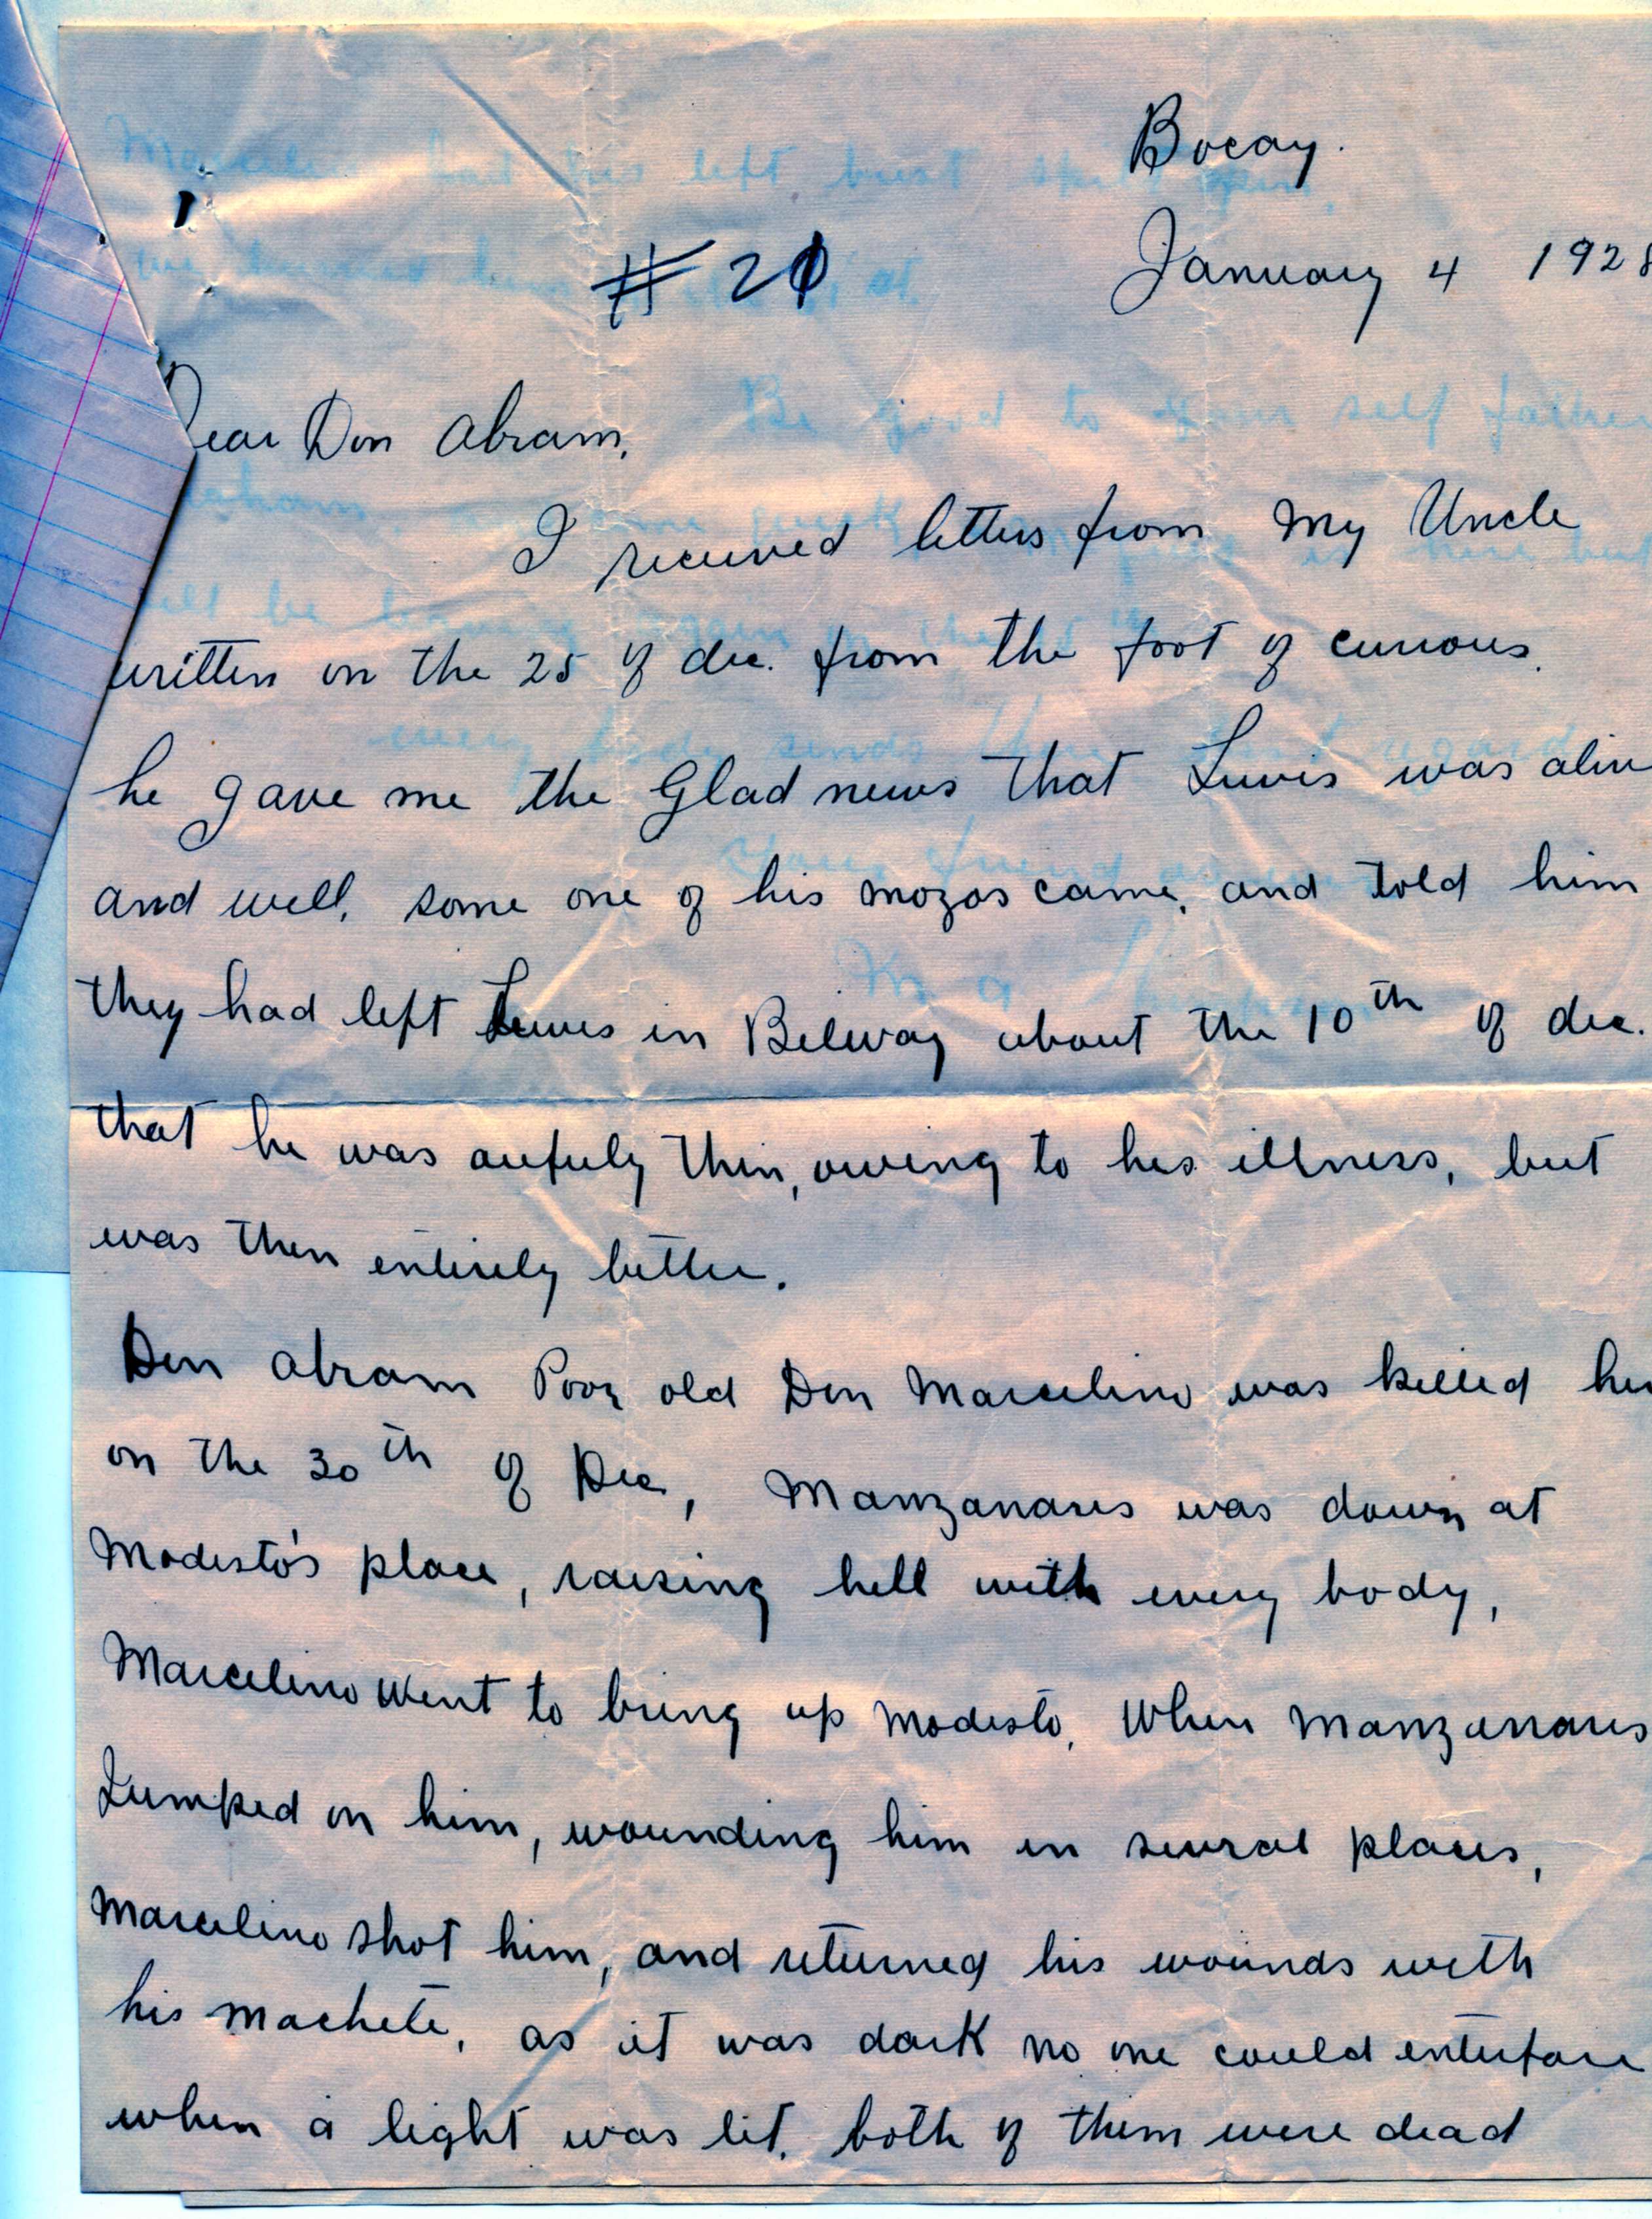 Bocay.
#20
January 4 1928
Dear Don Abram,
I received letters from My Uncle
written on the 25 of dec. from the foot of curious.
he gave me the Glad news that Luvis was aliv
and well, some one of his mozos came, and told him
they had left Luvis in Bilway about the 10th of dec.
that he was aufuly thin, owing to his illness, but
was then entirely better.
Don Abram Poor old Don Marcelino was killed her
on the 30th of Dec, Manzanares was down at
Modesto's place, raising hell with every body,
Marcelino Went to bring up Modesto, When Manzanares
Jumped on him, wounding him in several places,
Marcelino shot him, and returned his wounds with
his machete, as it was dark no one could enterfare
when a light was lit, both of them were dead
left brest
Be good to your self father
every body sends
Your friend